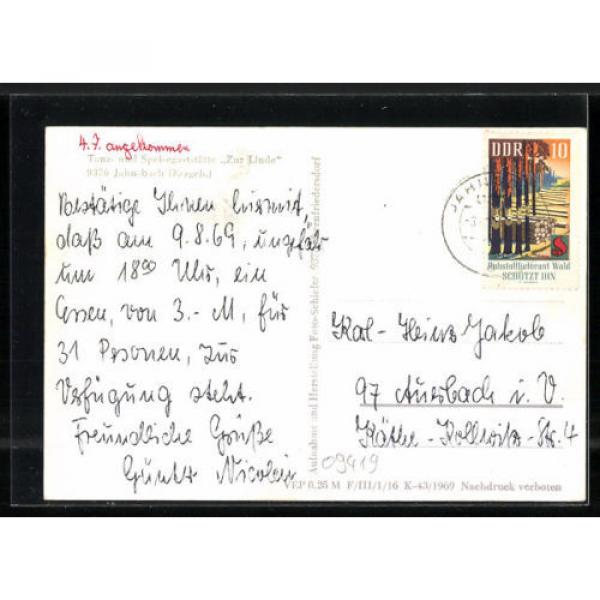 4.7. angekommen
Tanz- und Speisegaststätte „Zur Linde“
9376 Jahnsbach (Erzgeb.)
Bestätige Ihnen hiermit,
daß am 9.8.69, ungefähr
um 18⁰⁰ Uhr, ein
Essen, von 3.-M, für
31 Personen, zur
Verfügung steht.
Freundliche Grüße
Günter Nicolai
Aufnahme und Herstellung Foto-Schiefer
VEP 0,25 M F/III/1/16 K-43/1969 Nachdruck verboten
09419
JAHN
DDR 10
Rohstofflieferant Wald
SCHÜTZT IHN
Karl-Heinz Jakob
97 Auerbach i. V.
Käthe-Kollwitz-Str. 4